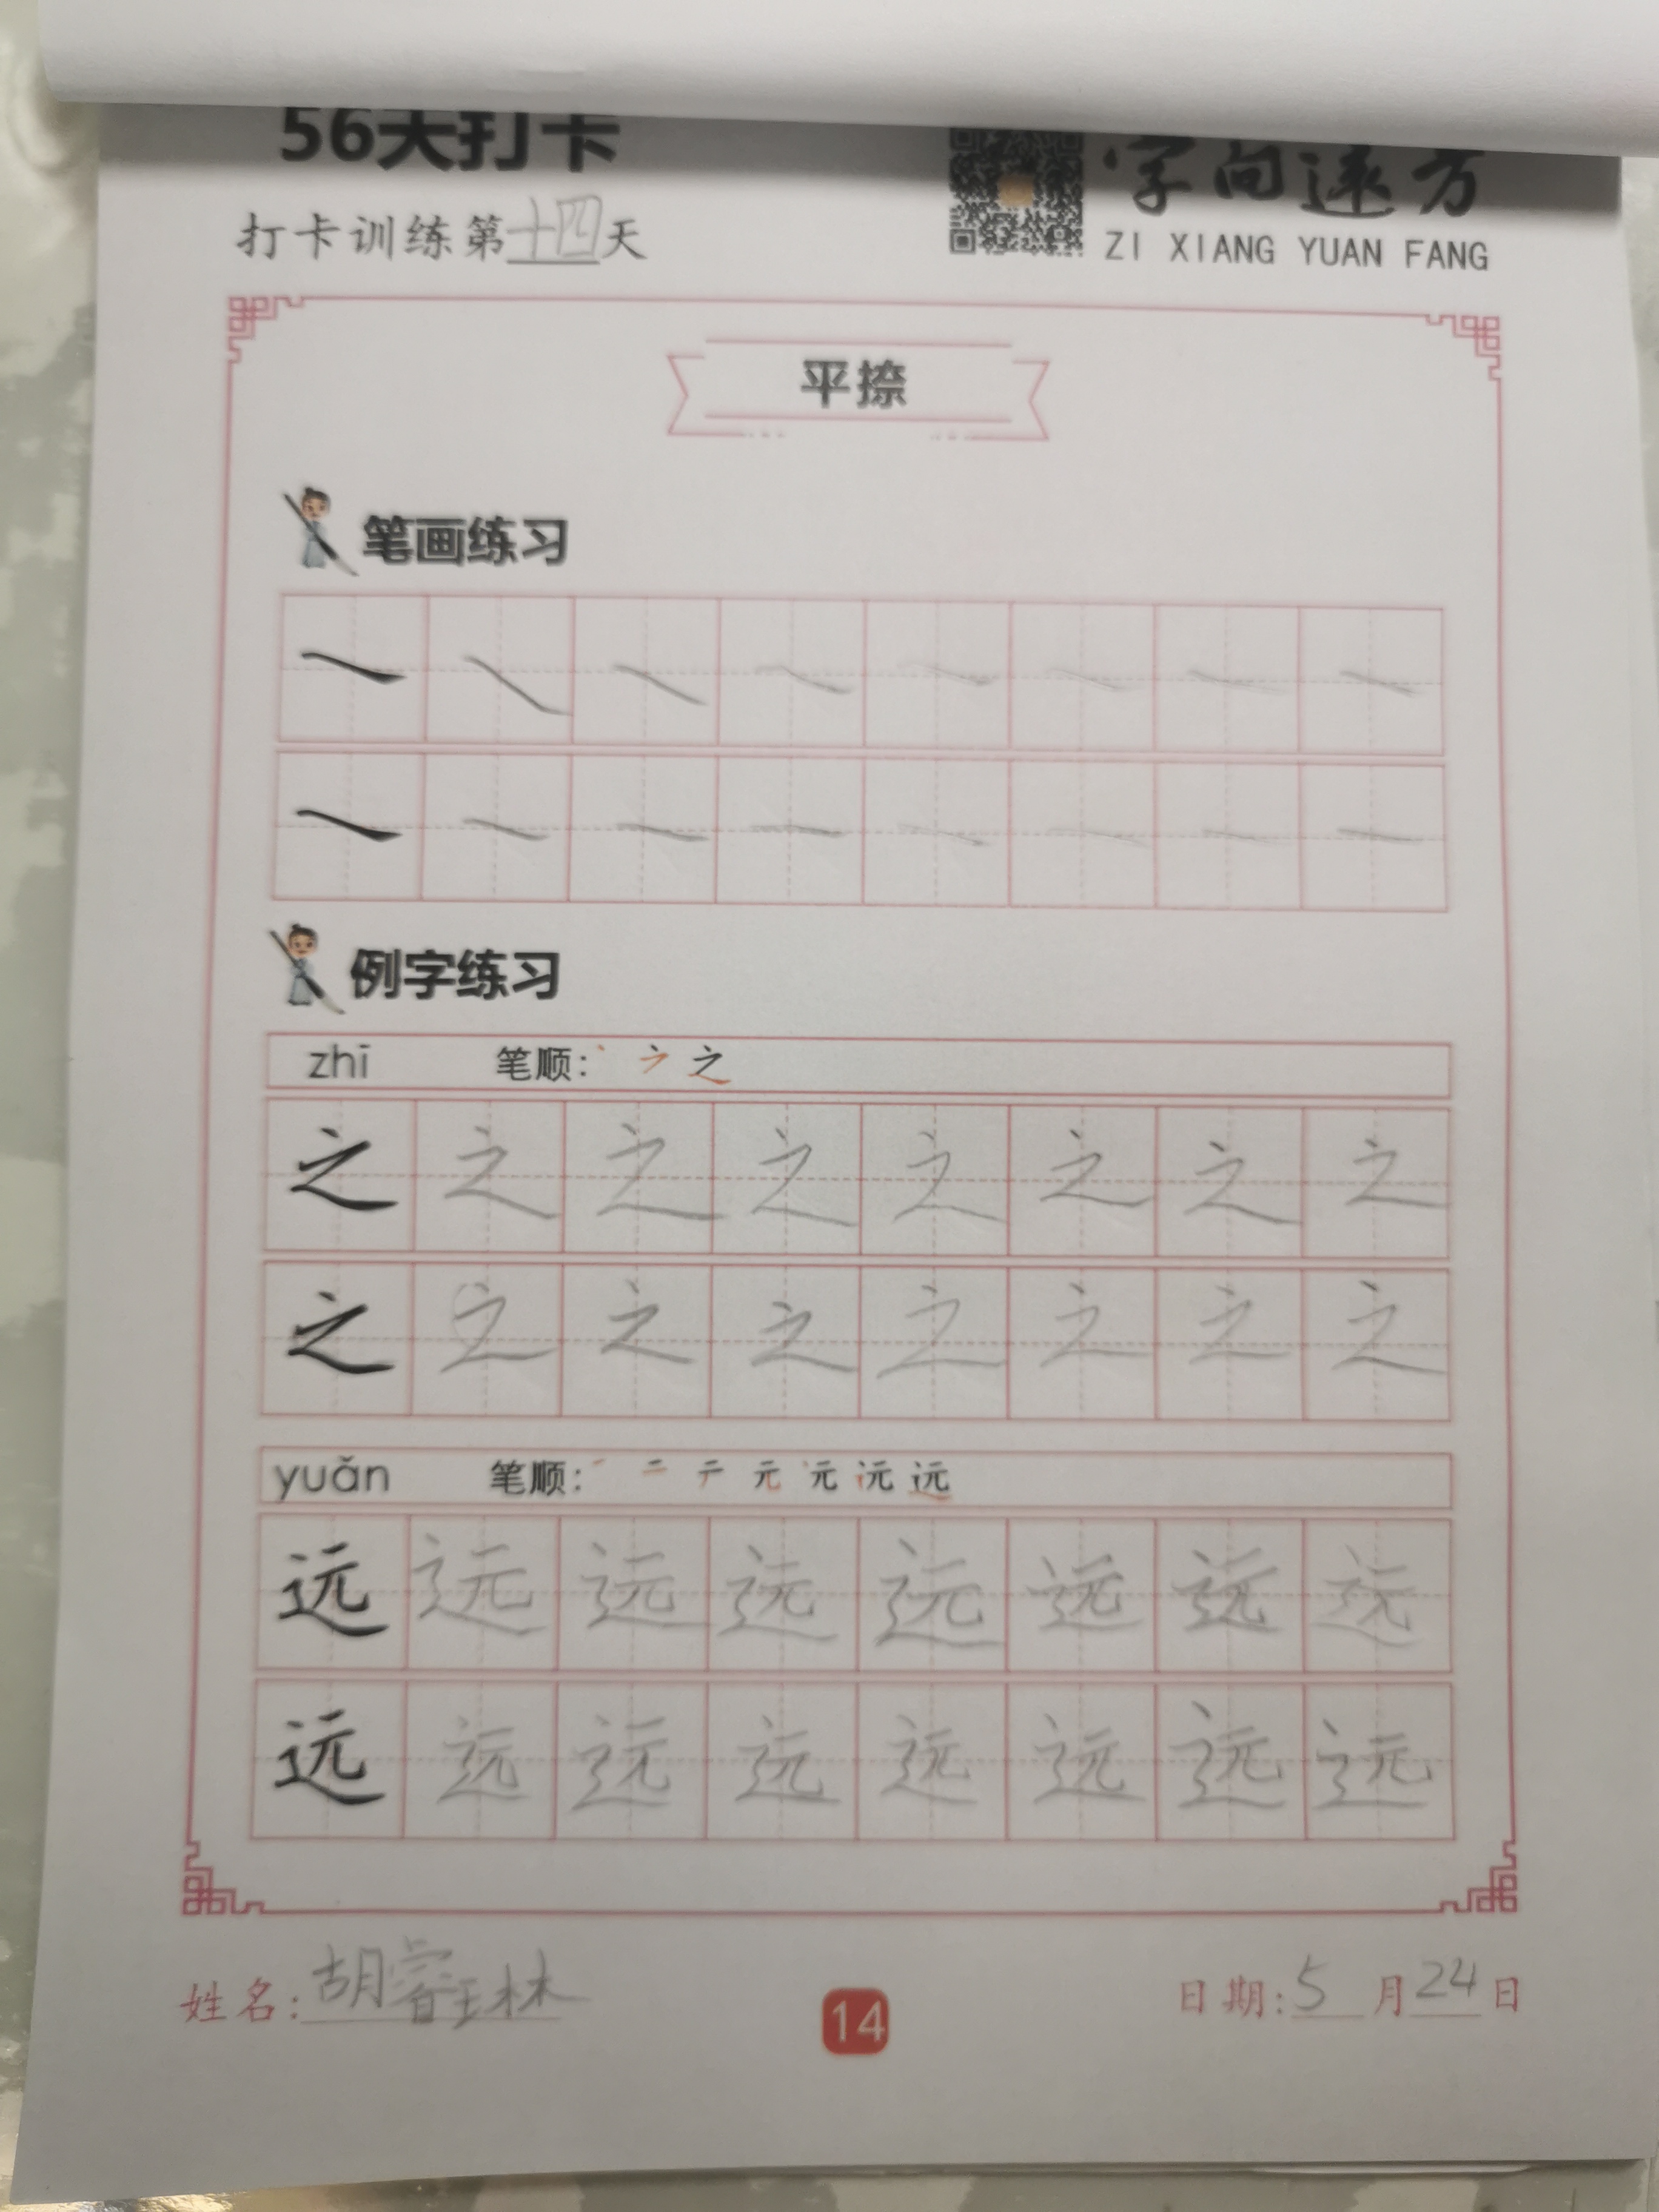 56天打卡
字向远方
打卡训练第十四天
ZI XIANG YUAN FANG
平捺
笔画练习
例字练习
zhī 笔顺: 之
之 之 之 之 之 之 之 之
之 之 之 之 之 之 之 之
yuǎn 笔顺: 一 二 テ 元 远
远 远 远 远 远 远 远 远
远 远 远 远 远 远 远 远
姓名: 胡睿琳
14
日期: 5 月 24 日